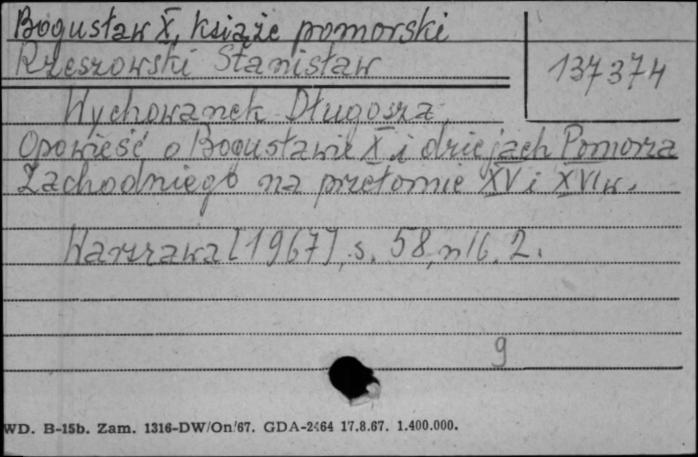 Bogusław X, książe pomorski
Rzeszowski Stanisław
137374
Wychowanek Długosza.
Opowieść o Bogusławie X i dziejach Pomorza
Zachodniego na przełomie XV i XVI w.
Warszawa [1967], s. 58, nlb. 2.
9
WD. B-15b. Zam. 1316-DW/On/67. GDA-2464 17.8.67. 1.400.000.